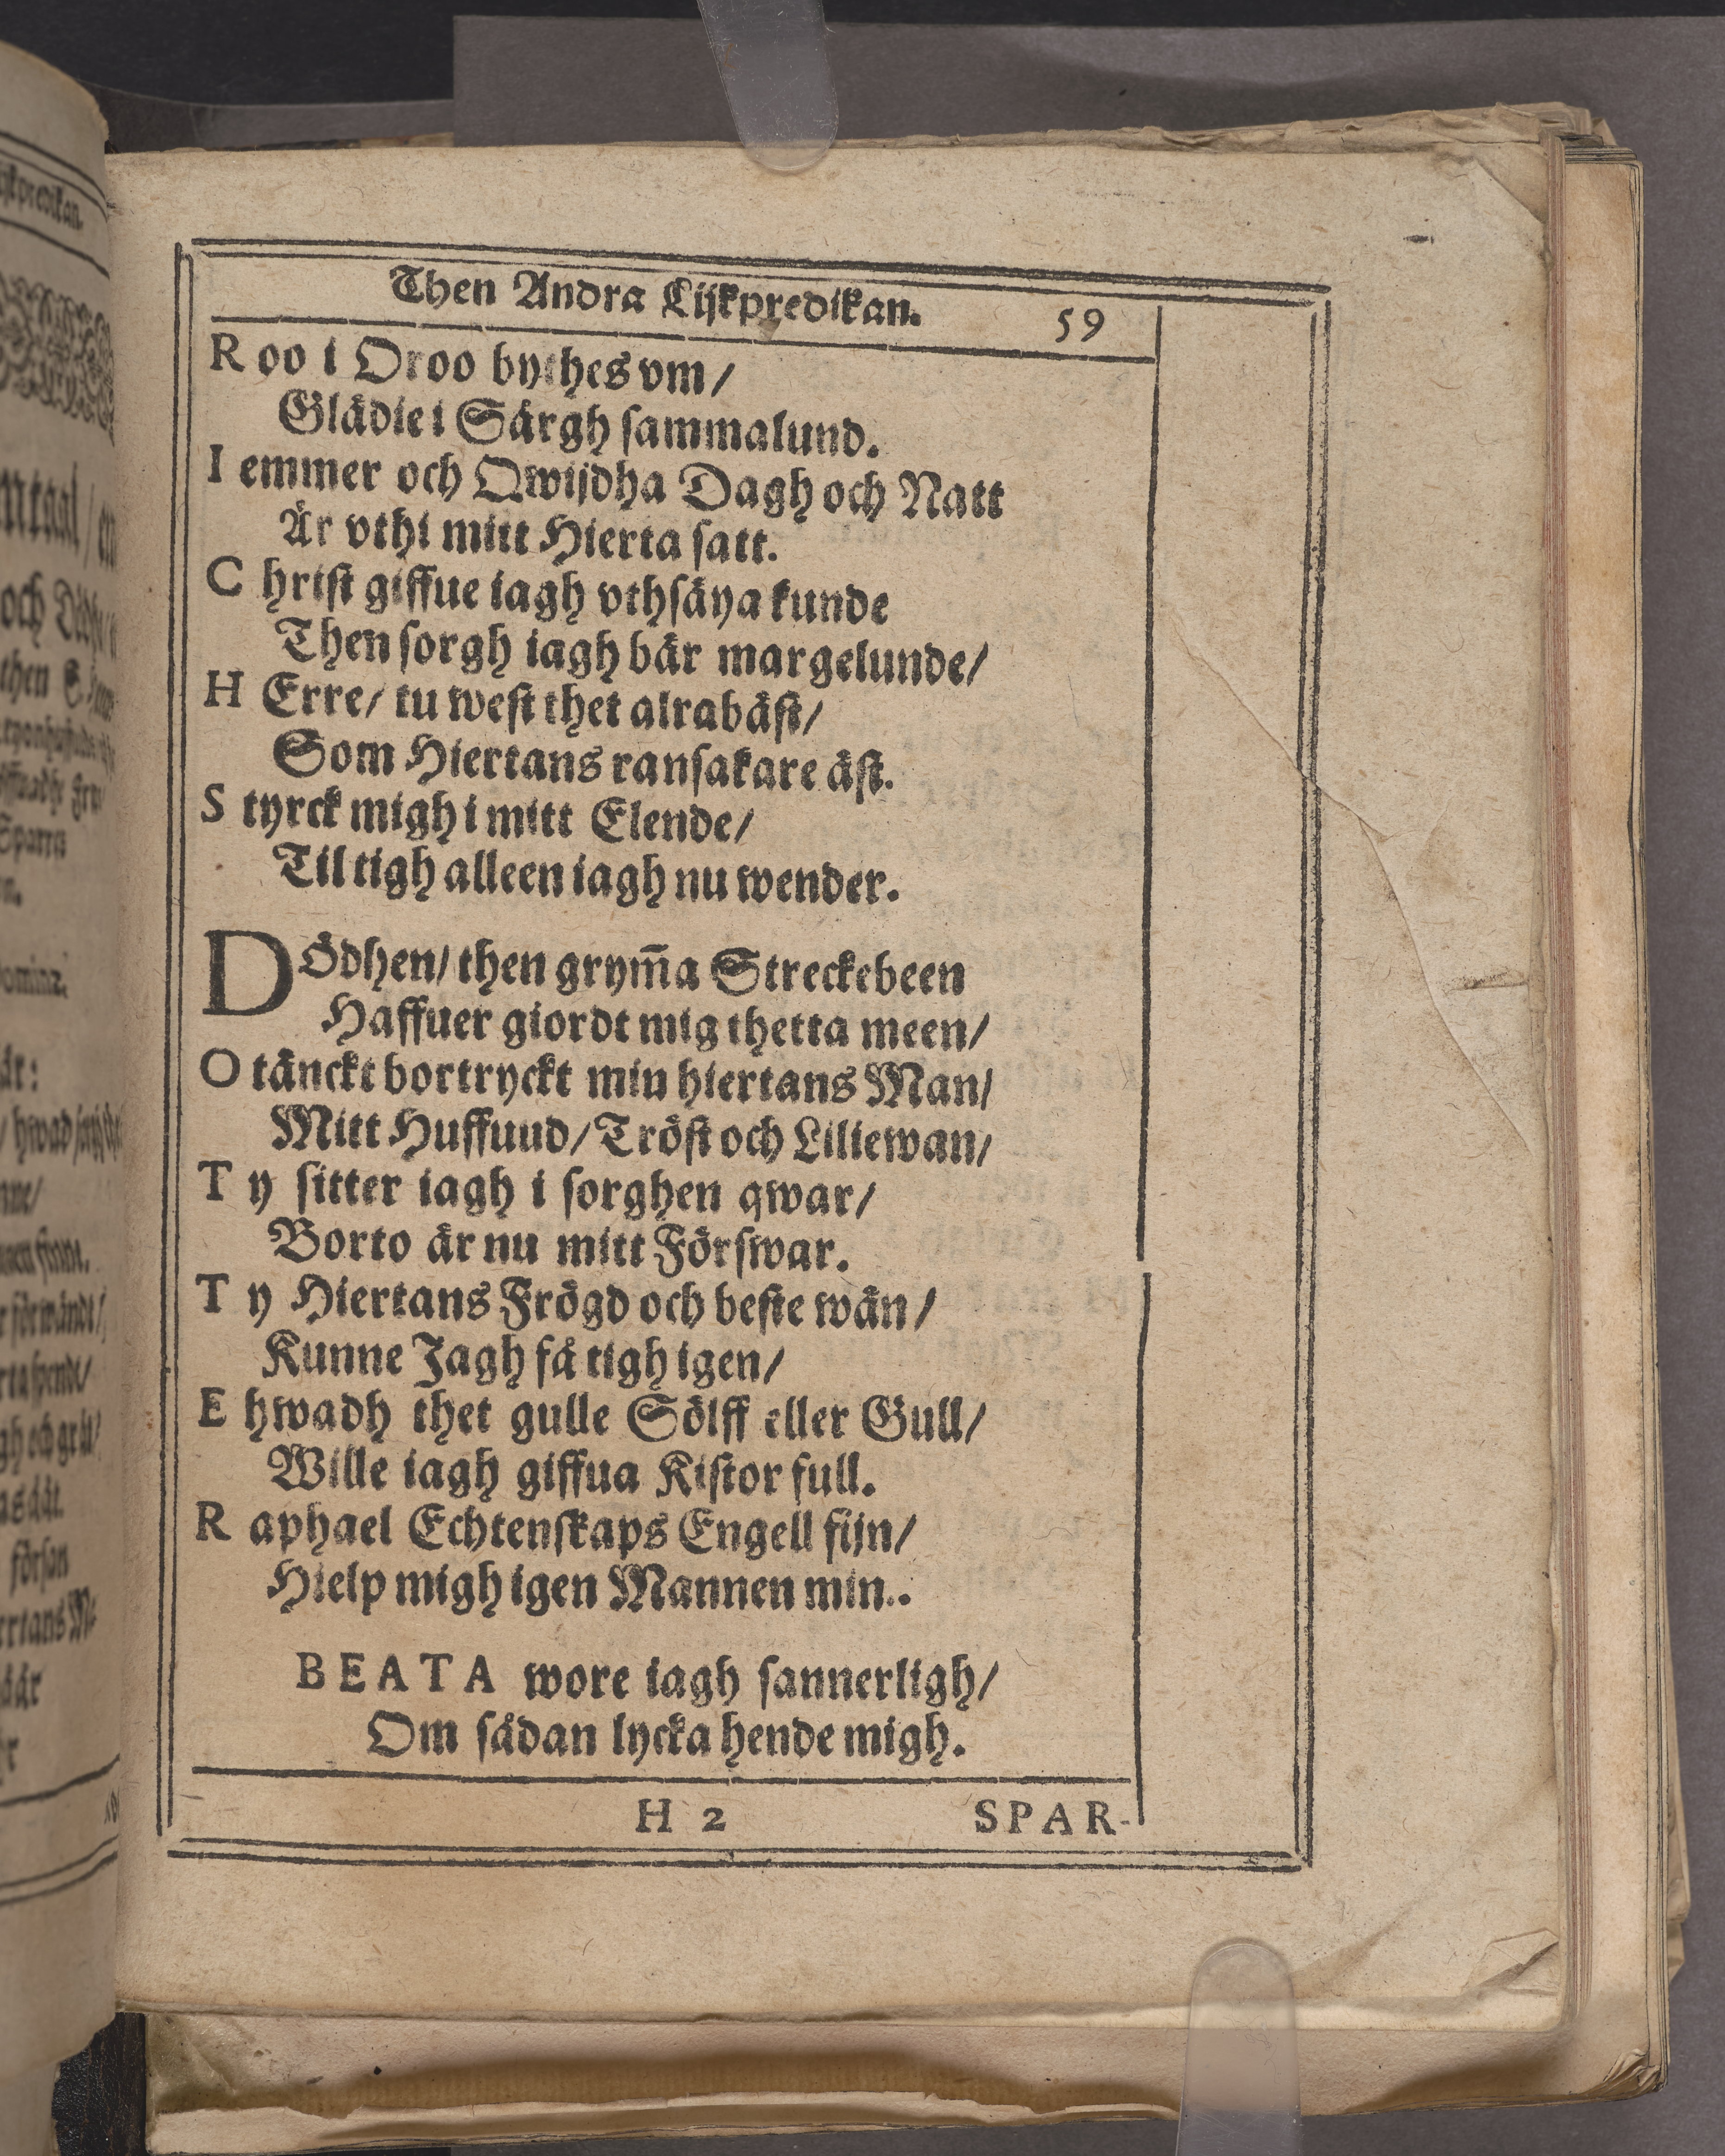 Then Andra Lijkpredikan. 59
R oo i Oroo bythes vm/
Glädie i Sårgh sammalund.
I emmer och Qwijdha Dagh och Natt
Är vthi mitt Hierta satt.
C hrist giffue iagh vthsäya kunde
Then sorgh iagh bär margelunde/
H Erre/ tu west thet alrabäst/
Som Hiertans ransakare äst.
S tyrck migh i mitt Elende/
Til tigh alleen iagh nu wender.
DÖdhen/ then grym̃a Streckebeen
Haffuer giordt mig thetta meen/
O tänckt bortryckt min hiertans Man/
Mitt Huffuud/ Tröst och Liliewan/
T y sitter iagh i sorghen qwar/
Borto är nu mitt Förswar.
T y Hiertans Frögd och beste wän/
Kunne Jagh få tigh igen/
E hwadh thet gulle Sölff eller Gull/
Wille iagh giffua Kistor full.
R aphael Echtenskaps Engell fijn/
Hielp migh igen Mannen min..
BEATA wore iagh sannerligh/
Om sådan lycka hende migh.
H 2 SPAR-